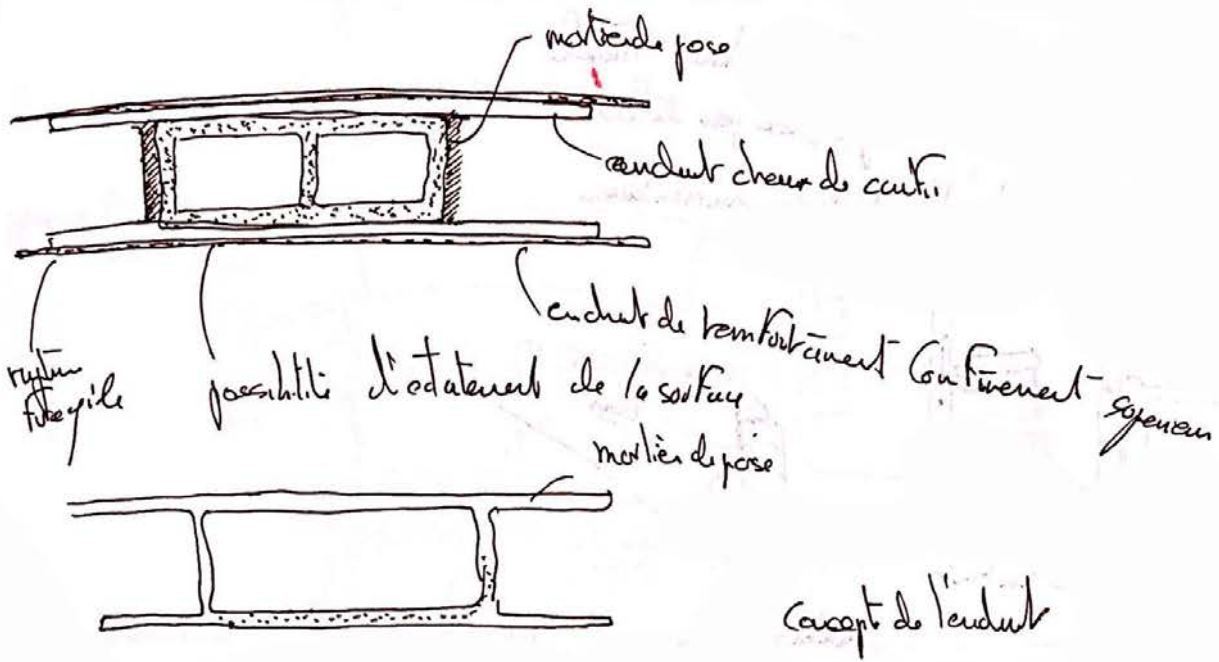 mortier de pose
enduit chaux de
enduit de renfort Confinement
rupture
fragile
possibilité d'éclatement de la surface
mortier de pose
Concept de l'enduit